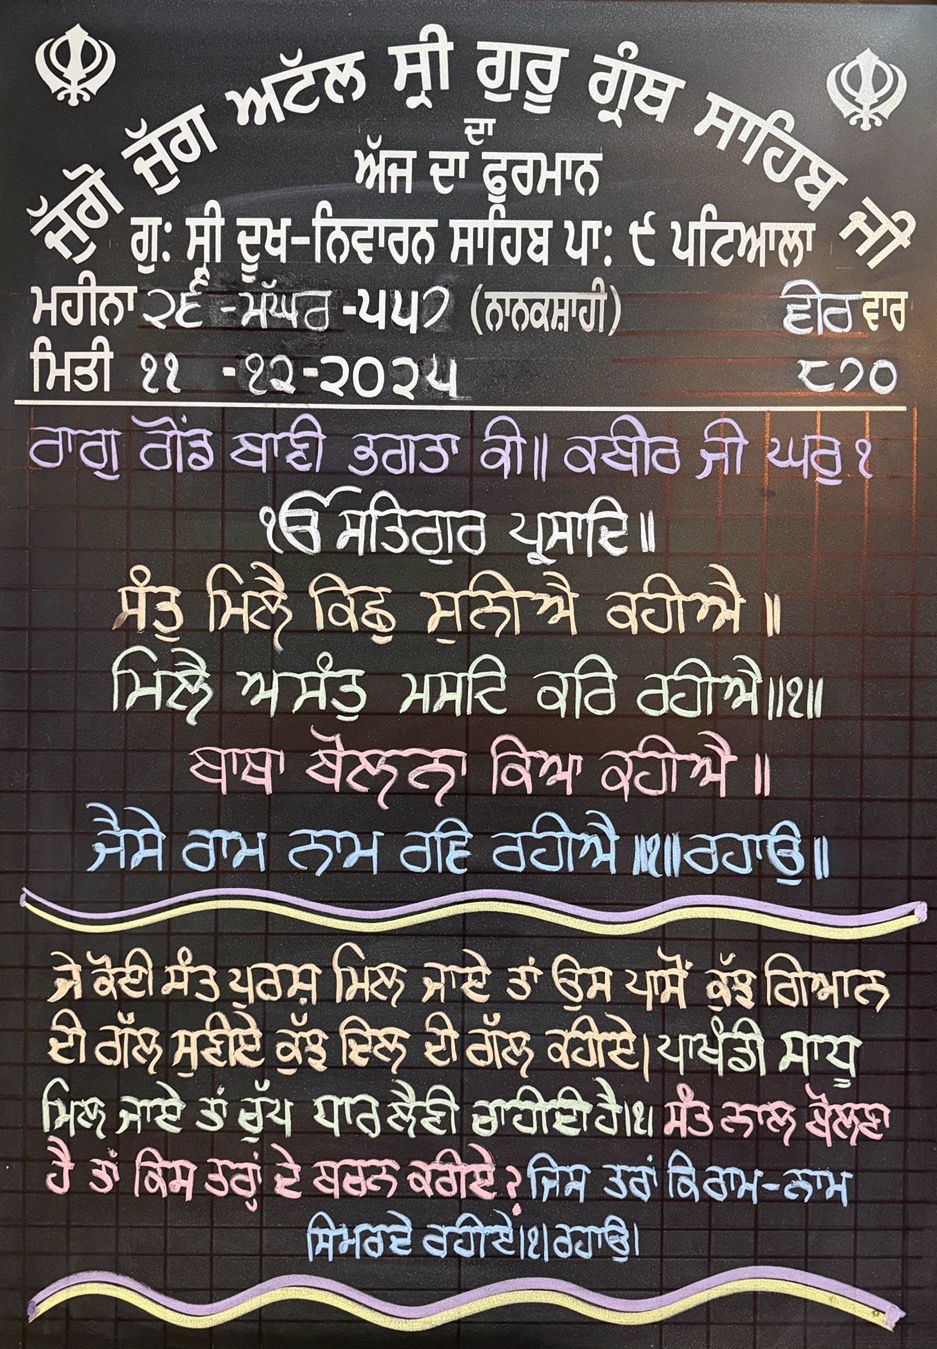 ਜੁੱਗੋ ਜੁੱਗ ਅਟੱਲ ਸ੍ਰੀ ਗੁਰੂ ਗ੍ਰੰਥ ਸਾਹਿਬ ਜੀ
ਦਾ
ਅੱਜ ਦਾ ਫੁਰਮਾਨ
ਗੁ: ਸ੍ਰੀ ਦੂਖ-ਨਿਵਾਰਨ ਸਾਹਿਬ ਪਾ: ੯ ਪਟਿਆਲਾ
ਮਹੀਨਾ ੨੬ -ਮੱਘਰ -੫੫੭ (ਨਾਨਕਸ਼ਾਹੀ) ਵੀਰ ਵਾਰ
ਮਿਤੀ ੧੧ -੧੨-੨੦੨੫ ੮੭੦
ਰਾਗੁ ਗੋਂਡ ਬਾਣੀ ਭਗਤਾ ਕੀ॥ ਕਬੀਰ ਜੀ ਘਰੁ ੧
ੴ ਸਤਿਗੁਰ ਪ੍ਰਸਾਦਿ॥
ਸੰਤੁ ਮਿਲੈ ਕਿਛੁ ਸੁਨੀਐ ਕਹੀਐ ॥
ਮਿਲੈ ਅਸੰਤੁ ਮਸਟਿ ਕਰਿ ਰਹੀਐ॥੧॥
ਬਾਬਾ ਬੋਲਨਾ ਕਿਆ ਕਹੀਐ ॥
ਜੈਸੇ ਰਾਮ ਨਾਮ ਰਵਿ ਰਹੀਐ ॥੧॥ਰਹਾਉ॥
ਜੇ ਕੋਈ ਸੰਤ ਪੁਰਸ਼ ਮਿਲ ਜਾਏ ਤਾਂ ਉਸ ਪਾਸੋਂ ਕੁੱਝ ਗਿਆਨ
ਦੀ ਗੱਲ ਸੁਣੀਏ ਕੁੱਝ ਦਿਲ ਦੀ ਗੱਲ ਕਹੀਏ। ਪਾਖੰਡੀ ਸਾਧੂ
ਮਿਲ ਜਾਏ ਤਾਂ ਚੁੱਖ ਧਾਰ ਲੈਣੀ ਚਾਹੀਦੀ ਹੈ।੧। ਸੰਤ ਨਾਲ ਬੋਲਣਾ
ਹੈ ਤਾਂ ਕਿਸ ਤਰ੍ਹਾਂ ਦੇ ਬਚਨ ਕਰੀਏ? ਜਿਸ ਤਰਾਂ ਕਿ ਰਾਮ-ਨਾਮ
ਸਿਮਰਦੇ ਰਹੀਏ।੧।ਰਹਾਉ।